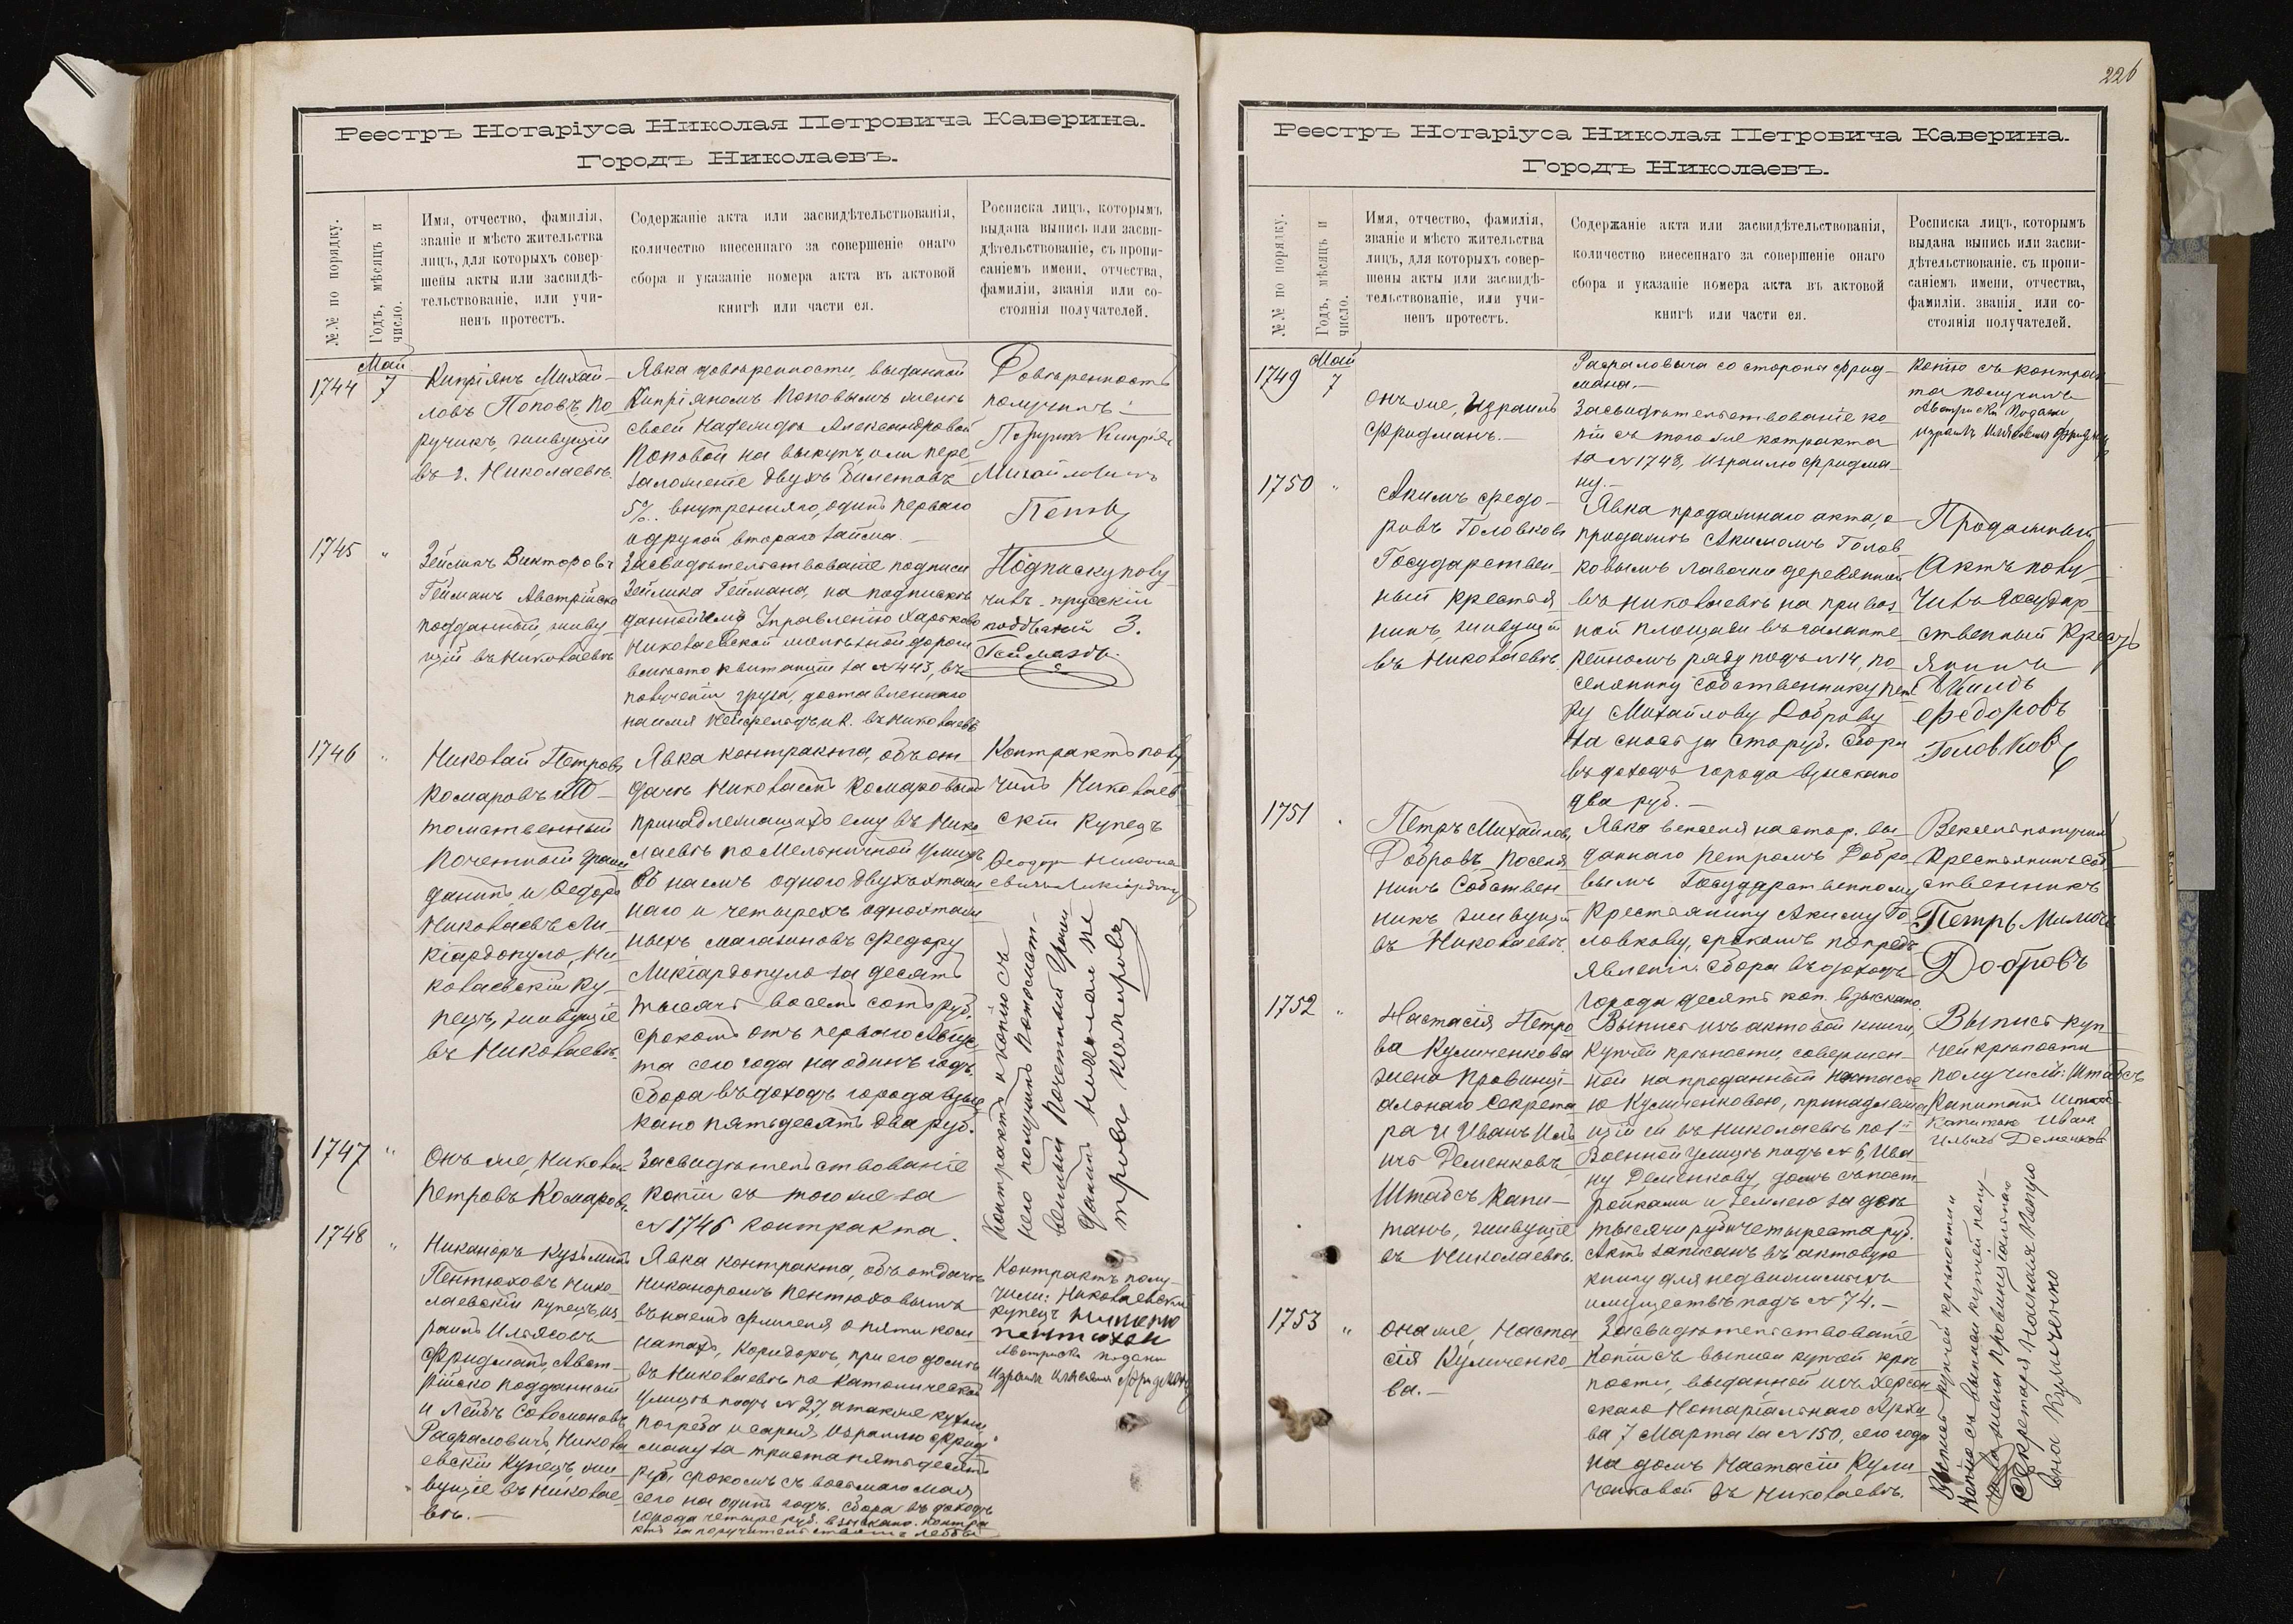 Реестръ Нотаріуса Николая Петровича Каверина.
Городъ Николаевъ.
№№ по порядку.
Годъ, мѣсяцъ и
число.
Имя, отчество, фамилія,
званіе и мѣсто жительства
лицъ, для которыхъ совер-
шены акты или засвидѣ-
тельствованіе, или учи-
ненъ протестъ.
Содержаніе акта или засвидѣтельствованія,
количество внесеннаго за совершеніе онаго
сбора и указаніе номера акта въ актовой
книгѣ или части ея.
Росписка лицъ, которымъ
выдана выпись или засви-
дѣтельствованіе, съ пропи-
саніемъ имени, отчества,
фамиліи, званія или со-
стоянія получателей.
Май
1744 7
Кипріянъ Михай-
ловъ Поповъ, По
ручикъ, живущій
въ г. Николаевѣ.
Явка довѣренности, выданной
Кипріяномъ Поповымъ женѣ
своей Надеждѣ Александровой
Поповой на выкупъ или пере
заложеніе двухъ билетовъ
5% внутренняго, одинъ перваго
а другой втораго займа. —
Довѣренность
получилъ:
Поручикъ Кипріян
Михайловичъ
Поповъ
1745 "
Зейликъ Викторовъ
Гейманъ Австрійско
подданный, живу-
щій въ Николаевѣ
Засвидѣтельствованіе подписи
Зейлика Геймана, на подпискѣ
данной имъ Управленію Харьково
Николаевской желѣзной дороги
вмѣсто квитанціи за № 443, въ
полученіи груза, доставленнаго
на имя въ Николаевъ
Подписку полу
чилъ прусскій
подданый З.
Гейманъ
1746 "
Николай Петровъ
Комаровъ По-
томственный
Почетный граж
данинъ и Федоръ
Николаевъ Ли
кіардопуло, Ни
колаевскій ку-
пецъ, живущіе
въ Николаевѣ.
Явка контракта, объ от
дачѣ Николаемъ Комаровымъ
принадлежащихъ ему въ Нико
лаевѣ по Мельничной улицѣ
въ наемъ одного двухъэтаж
наго и четырехъ одноэтаж
ныхъ магазиновъ Федору
Ликіардопуло за десять
тысячъ восемь сотъ руб.
срокомъ отъ перваго Авгус
та сего года на одинъ годъ.
Сбора въ доходъ города взыс
кано пятьдесятъ два руб.
Контрактъ полу
чилъ Николаев
скій Купецъ
Феодоръ Николае
вичъ Ликіардопуло
Контрактъ и копію съ
него получилъ Потомст-
венный Почетный Граж-
данинъ Николай Пе
тровъ Комаровъ
1747 "
Онъ же, Николай
Петровъ Комаровъ.
Засвидѣтельствованіе
копіи съ того же за
№ 1746 контракта.
1748 "
Никаноръ Кузьминъ
Пентюховъ Нико-
лаевскій купецъ, Из
раиль Ильясовъ
Фридманъ, Авст-
рійско подданный
и Лейбъ Соломоновъ
Рафаловичъ, Никола
евскій Купецъ, жи
вущіе въ Николае
вѣ. —
Явка контракта, объ отдачѣ
Никаноромъ Пентюховымъ
въ наемъ флигеля о пяти ком
натахъ, Коридорѣ, при его домѣ
въ Николаевѣ по Католической
улицѣ подъ № 27, а также кухни
погреба и сарая, Израилю Фрид
ману за триста пятьдесятъ
руб. срокомъ съ восьмаго мая
сего на одинъ годъ. Сбора въ доходъ
города четыре руб. взыскано. Контра
ктъ за поручительствомъ Лейбы
Контрактъ полу-
чили: Николаевскій
купецъ Никаноръ
Пентюхов
Австрійск. подани
Израиль Ильясовъ Фридманъ
226
Реестръ Нотаріуса Николая Петровича Каверина.
Городъ Николаевъ.
№№ по порядку.
Годъ, мѣсяцъ и
число.
Имя, отчество, фамилія,
званіе и мѣсто жительства
лицъ, для которыхъ совер-
шены акты или засвидѣ-
тельствованіе, или учи-
ненъ протестъ.
Содержаніе акта или засвидѣтельствованія,
количество внесеннаго за совершеніе онаго
сбора и указаніе номера акта въ актовой
книгѣ или части ея.
Росписка лицъ, которымъ
выдана выпись или засви-
дѣтельствованіе. съ пропи-
саніемъ имени, отчества,
фамиліи. званія или со-
стоянія получателей.
Май
1749 7
Онъ же, Израиль
Фридманъ. —
Рафаловича со стороны Фрид-
мана. —
Засвидѣтельствованіе ко
піи съ того же контракта
за № 1748, Израилю Фридма-
ну. —
Копію съ контрак
та получилъ
Австрійски Подани
Израиль Ильясовъ Фридманъ
1750 "
Акимъ Федо-
ровъ Головковъ
Государствен-
ный крестья
нинъ, живущій
въ Николаевѣ.
Явка продажнаго акта, о
продажѣ Акимомъ Голов
ковымъ лавочки деревянной
въ Николаевѣ на привоз
ной площади въ галанте
рейномъ ряду подъ № 14, по
селянину собственнику Пет
ру Михайлову Доброву
на сносъ за сто руб. Сбора
въ доходъ города взыскано
два руб. —
Продажный
Актъ полу-
чилъ Государ
ственный Кресть
янинъ
Акимъ
Федоровъ
Головковъ
1751 "
Петръ Михайловъ
Добровъ, Поселя
нинъ Собствен
никъ живущій
въ Николаевѣ.
Явка векселя на стор. вы-
даннаго Петромъ Добро
вымъ Государственному
Крестьянину Акиму Го
ловкову, срокомъ по предъ
явленіи. Сбора въ доходъ
города десять коп. взыскано.
Вексель получилъ
Крестьянинъ соб
ственникъ
Петръ Михайл
Добровъ
1752 "
Настасія Петро
ва Куличенкова
жена Провинці-
альнаго Секрета
ря и Иванъ Иль
инъ Деменковъ
Штабсъ Капи-
танъ, живущіе
въ Николаевѣ.
Выпись изъ актовой книги,
купчей крѣпости, совершен-
ной на проданный Настасіе
ю Куличенковою, принадлежа
щій ей въ Николаевѣ по 1й
Военной улицѣ подъ № 6, Ива
ну Деменкову, домъ съ пост-
ройками и землею за двѣ
тысячи руб. четыреста руб.
Актъ записанъ въ актовую
книгу для недвижимыхъ
имуществъ подъ № 74. —
Выпись куп
чей крѣпости
получили: Штабсъ
Капитанъ Штабс
Капитанъ Иван
Ильинъ Деменковъ
1753 "
Она же, Наста
сія Куличенко
ва. —
Засвидѣтельствованіе
Копіи съ выписи купчей крѣ
пости, выданной изъ Херсон
скаго Нотаріальнаго Архи
ва 7 Марта за № 150, сего года
на домъ Настасіи Кули
ченковой въ Николаевѣ.
Выпись купчей крѣпости и
Копію съ выписи купчей полу-
чила жена Провинціальнаго
Секретаря Настасія Петро
вна Куличенко